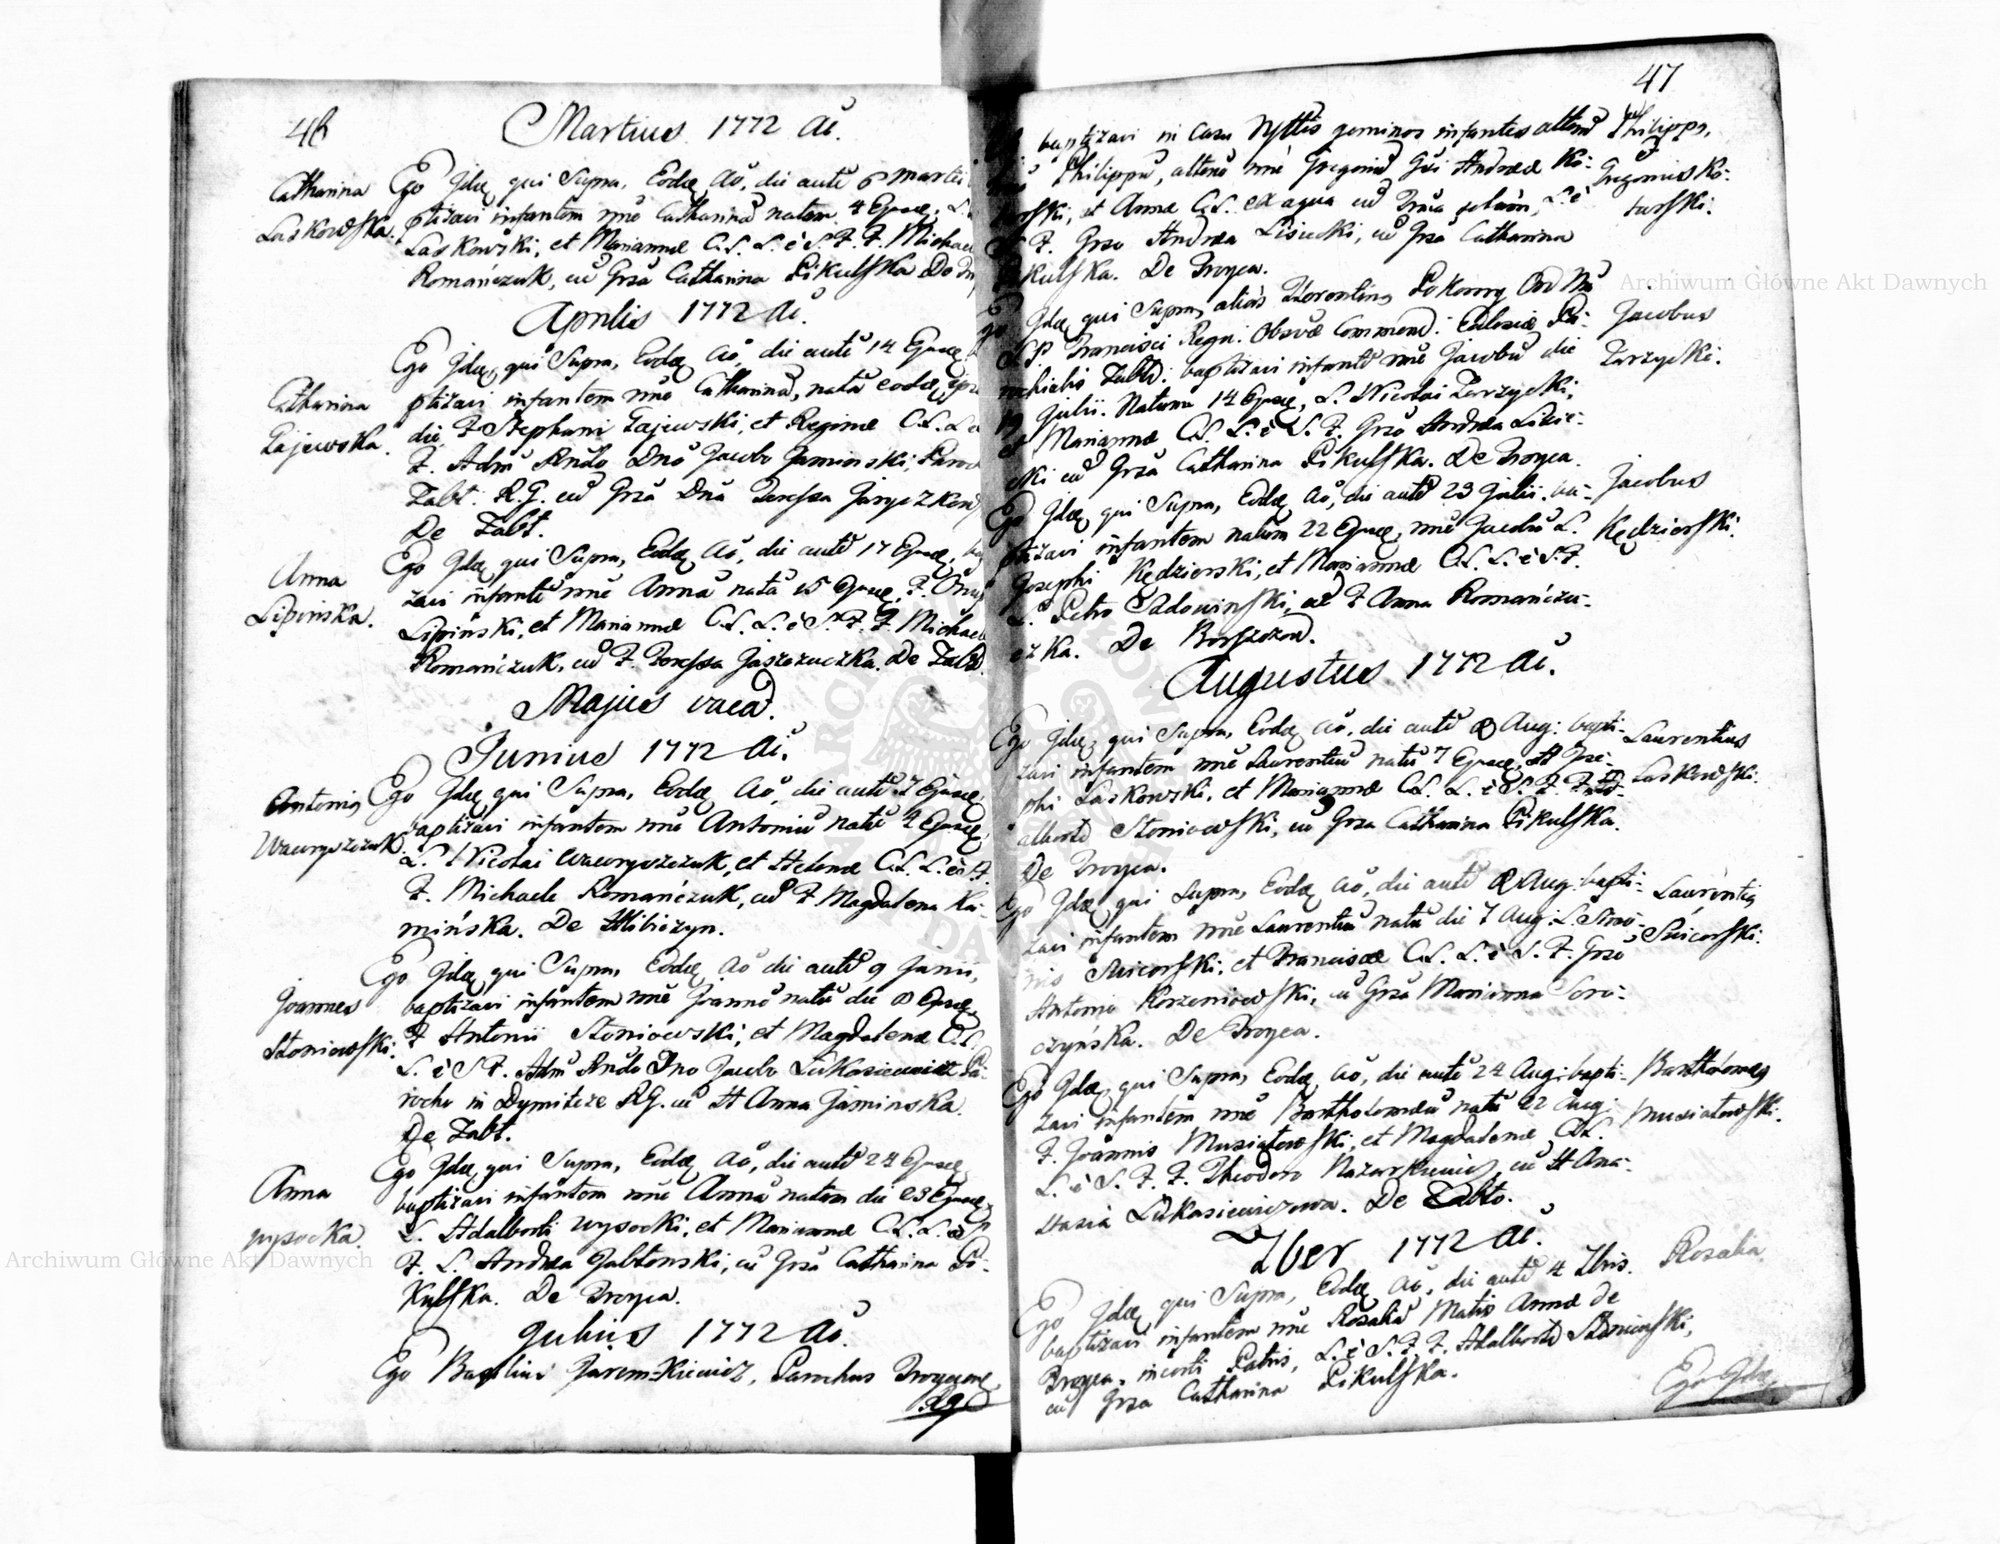 46
Martius 1772 Aĭ.
Catharina
Laskowska.
Ego Idem qui Supra, Eodem Aō, die autē 6 Martii
ptizavi infantem nnē Catharinā natam 4 Ejusd,
Laskowski, et Mariannæ C.L. L. è S.F. F. Michae
Romańczuk, cū Grsā Catharina Pikulska De
Aprilis 1772 Aĭ.
Catharina
Gajewska.
Ego Idem qui Supra, Eodem Aō, die autē 14 Ejusd
ptizavi infantem nnē Catharinā, natā eodem
die, F. Stephani Gajewski, et Reginæ C.L.
F. Adm Rndo Dno Jacobo Jaminski, Paroch
Zabt: R.G. cū Grsā Dnā Teressa
De Zabt.
Anna
Lipińska.
Ego Idem qui Supra, Eodem Aō, die autē 17 Ejusd,
zavi infantē nnē Annā natā 15 Ejusd, F.
Lipinski, et Mariannæ C.L. L. è S.F. F. Michae
Romańczuk, cū F. Teressa Jaszczuczka. De Zabt.
Majus vacat.
Junius 1772 Aĭ.
Antonius
Wawryszczuk.
Ego Idem qui Supra, Eodem Aō, die autē 7 Ejusd
baptizavi infantem nnē Antoniū natū 4 Ejusd,
L. Nicolai Wawryszczuk, et Helenæ C.L. L. è S.
F. Michaele Romańczuk, cū F. Magdalena Ka-
mińska. De Hlibiczyn.
Joannes
Słoniowski.
Ego Idem qui Supra, Eodem Aō die autē 9 Junii,
baptizavi infantem nnē Joannē natū die 8 Ejusd,
F. Antonii Słoniowski, et Magdalenæ C.L.
L. è S.F. Adm Rndo Dno Jacobo Łukasiewicz Pa-
rocho in Dymitrze R.G. cū H Anna Jaminska.
De Zabt.
Anna
wysocka.
Ego Idem qui Supra, Eodem Aō, die autē 24 Ejusd
baptizavi infantem nnē Annā natam die 23 Ejusd,
L. Adalberti wysocki, et Mariannæ C.L. L. è S
F. L. Andrea Jabłonski, cū Grsā Catharina Pi-
kulska. De Troyca.
Julius 1772 Aĭ.
Ego Basilius Jaremkiewicz, Parochus Troycen
R.G.
47
baptizavi in Casu geminos infantes alterū
Philippū, alterū nnē Gregoriū Gsi Andreæ Ko-
turski, et Annæ C.L. ex aqua L. è
S.F. Grso Andrea Lisiecki, cū Grsā Catharina
Pikulska. De Troyca.
Philippus,
Gregorius Ko-
turski.
Ego Idem qui Supra, aliās Florentinus Pokorny Ord Mi
S.P Francisci Regu: Obsvæ Commend: Ecclesiæ Pa-
rochialis Zabt: baptizavi infantē nnē Jacobū die
19 Julii. Natum 14 Ejusd, L. Nicolai Zarzycki,
et Mariannæ C.L. L. è S.F. Grso Andrea Lisie-
cki cū Grsā Catharina Pikulska. De Troyca.
Jacobus
Zarzycki.
Ego Idem qui Supra, Eodem Aō, die autē 23 Julii. ba-
ptizavi infantem natum 22 Ejusd, nnē Jacobū L.
Josephi Kędzierski, et Mariannæ C.L. L. è S.F.
L. Petro Sadowinski, cū F Anna Romańczu-
czka. De Borszczow.
Jacobus
Kędzierski.
Augustus 1772 Aĭ.
Ego Idem qui Supra, Eodem Aō, die autē 8 Aug: bapti-
zavi infantem nnē Laurentiū natū 7 Ejusd, H Jose-
phi Laskowski, et Mariannæ C.L. L. è S.F. F. Ad-
alberto Słoniowski, cū Grsā Catharina Pikulska.
De Troyca.
Laurentius
Laskowski.
Ego Idem qui Supra, Eodem Aō, die autē 8 Aug: bapti-
zavi infantem nnē Laurentiū natū die 7 Aug: L. Simo-
nis Suicorski, et Franciscæ C.L. L. è S. F. Grso
Antonio Korzeniowski, cū Grsā Marianna Soro-
czyńska. De Troyca.
Laurentius
Suicorski.
Ego Idem qui Supra, Eodem Aō, die autē 24 Aug: bapti-
zavi infantem nnē Bartholomæū natū 22 Aug:
F. Joannis Musiatowski, et Magdalenæ C.L.
L. è S.F. F. Theodoro Nazarkiewicz, cū H Ana-
stasia Łukasiewiczowa. De Zabto.
Bartholomæus
Musiatowski.
7ber 1772 Aĭ.
Ego Idem qui Supra, Eodem Aō, die autē 4 7bris.
baptizavi infantem nnē Rosaliā Matris Annæ de
Troyca, incerti Patris, L. è S.F. F. Adalberto Słoniowski,
cū Grsā Catharina Pikulska.
Rosalia
Ego Idem
Archiwum Główne Akt Dawnych
Archiwum Główne Akt Dawnych